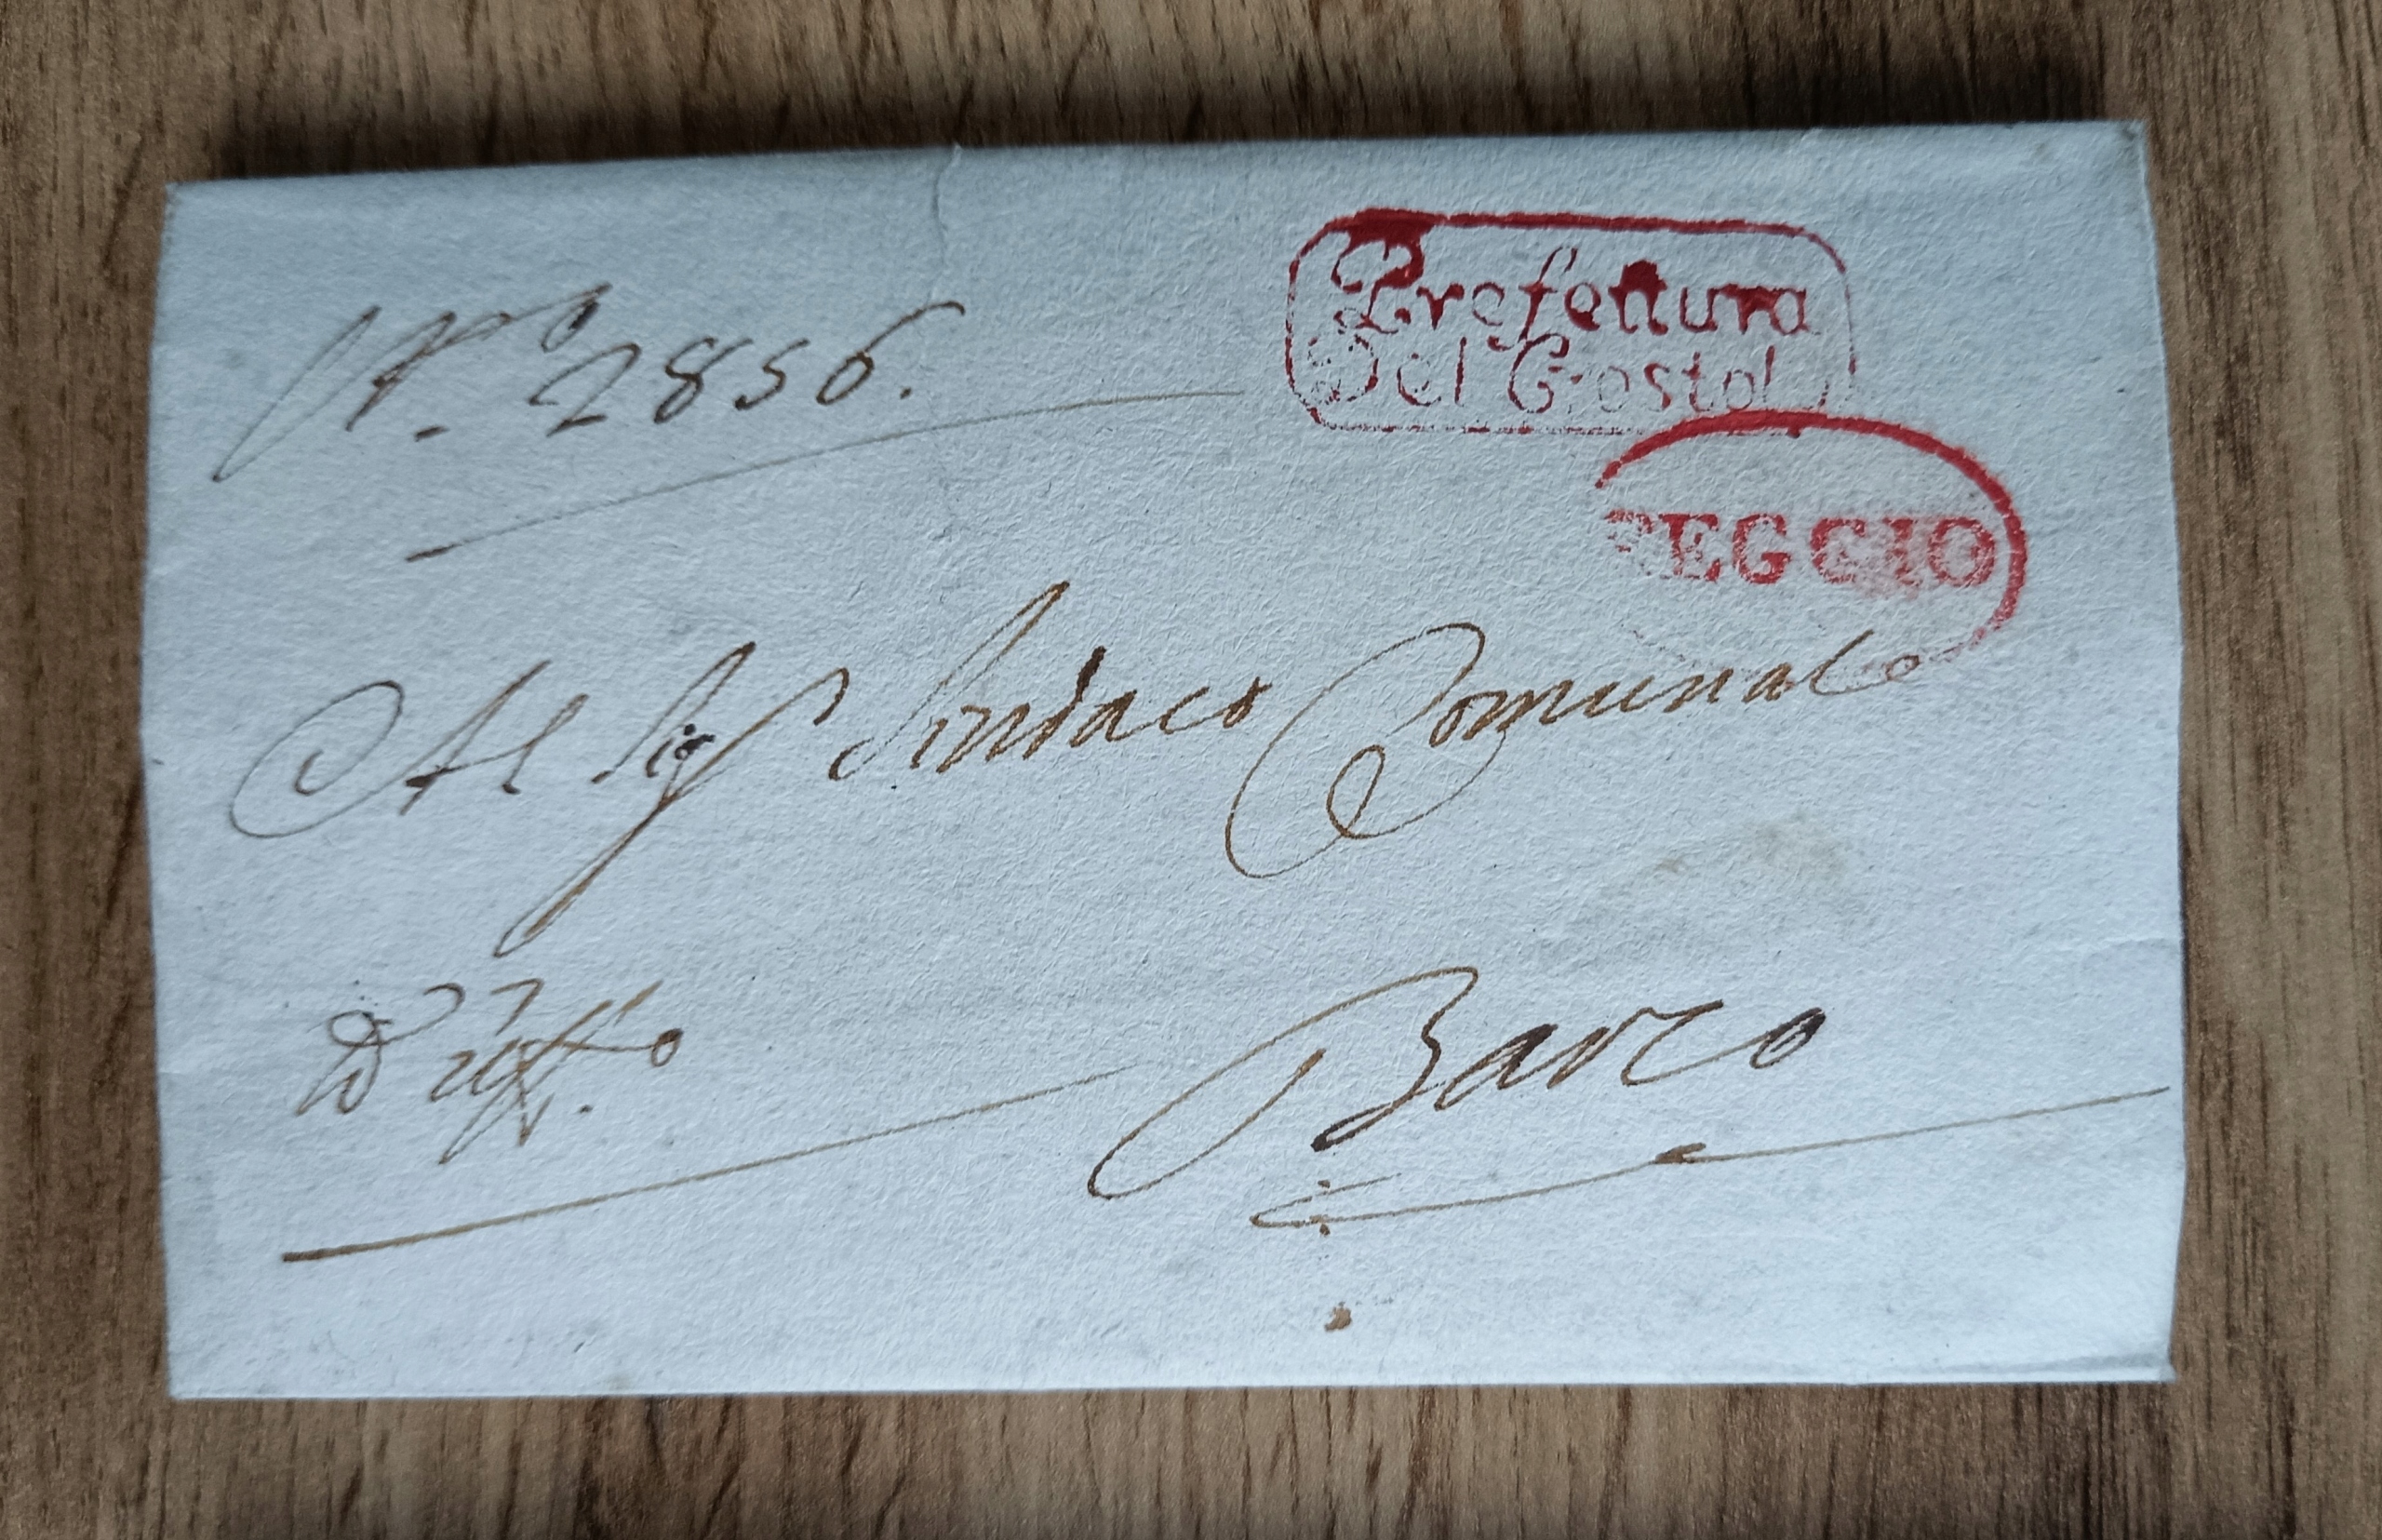 N.o 2856.
Prefettura
Del Crostolo
REGGIO
Al Sig.r Sindaco Comunale
D'uff.o
Barco